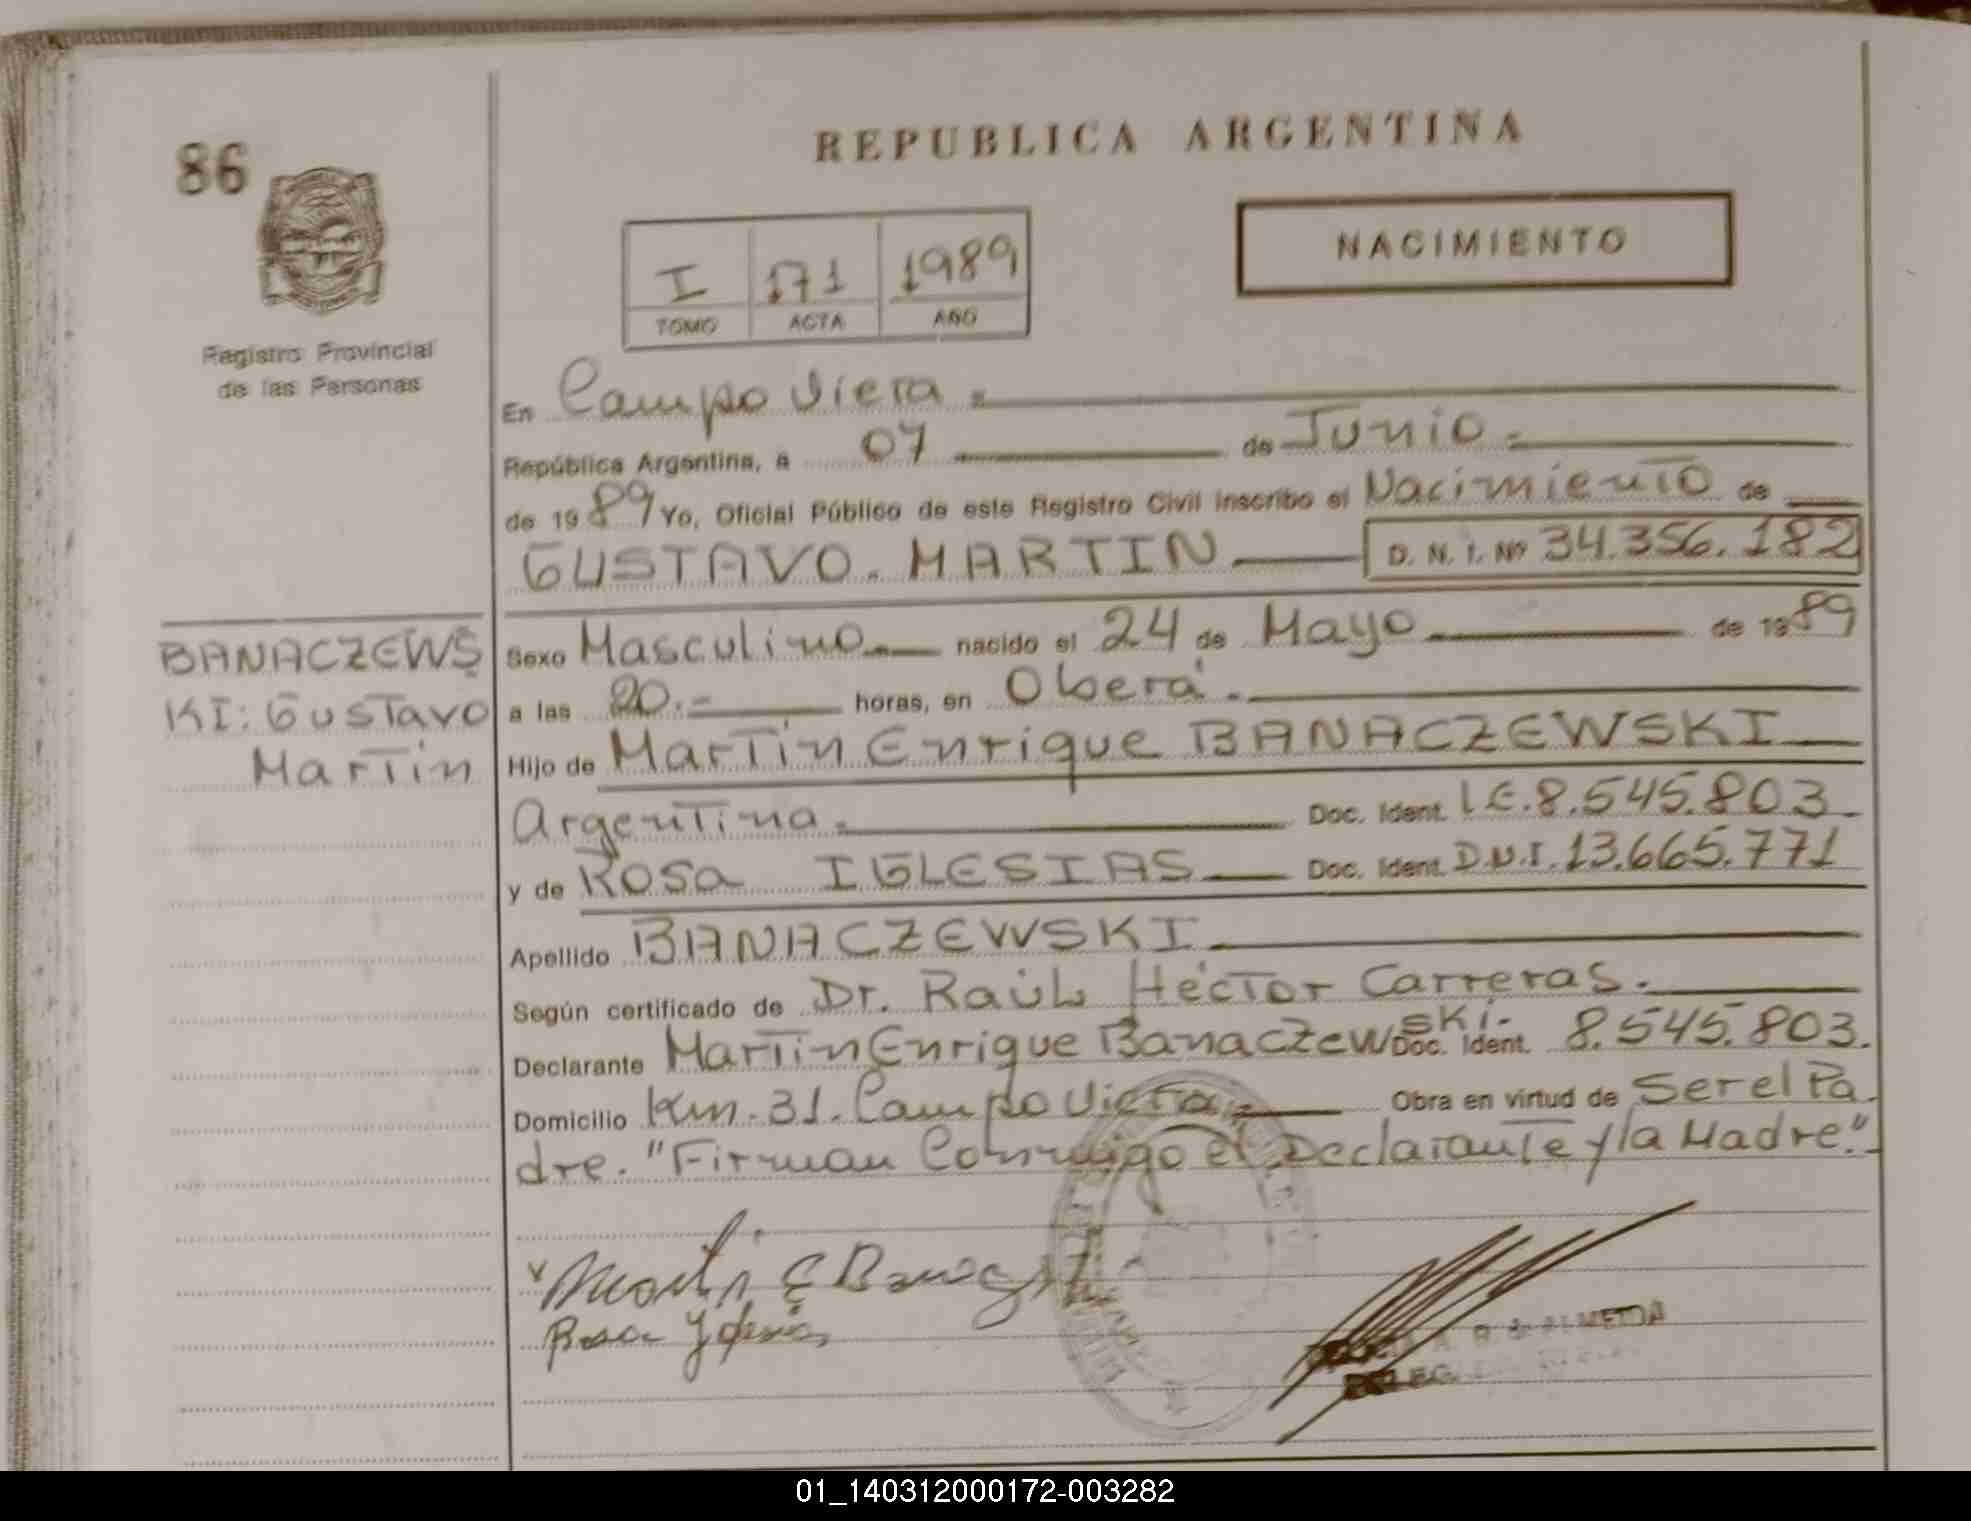 86
REPUBLICA ARGENTINA
NACIMIENTO
I 171 1989
TOMO ACTA AÑO
Registro Provincial
de las Personas
En Campo Viera.=
República Argentina, a 07 de Junio.=
de 1989 Yo, Oficial Público de este Registro Civil inscribo el Nacimiento de
GUSTAVO. MARTIN D. N. I. Nº 34.356.182
BANACZEWS
KI: Gustavo
Martin
Sexo Masculino.- nacido el 24 de Mayo.- de 1989
a las 20.- horas, en Oberá.-
Hijo de Martin Enrique BANACZEWSKI
Argentina.- Doc. Ident. L.E.8.545.803
y de Rosa IGLESIAS Doc. Ident. D.N.I.13.665.771
Apellido BANACZEWSKI.
Según certificado de Dr. Raúl Héctor Carreras.
Declarante Martin Enrique Banaczewski.- Doc. Ident. 8.545.803.
Domicilio Km.31.Campo Viera.- Obra en virtud de Ser el Pa
dre. "Firman Conmigo el Declarante y la Madre."
Rosa
ALMEIDA
01_140312000172-003282